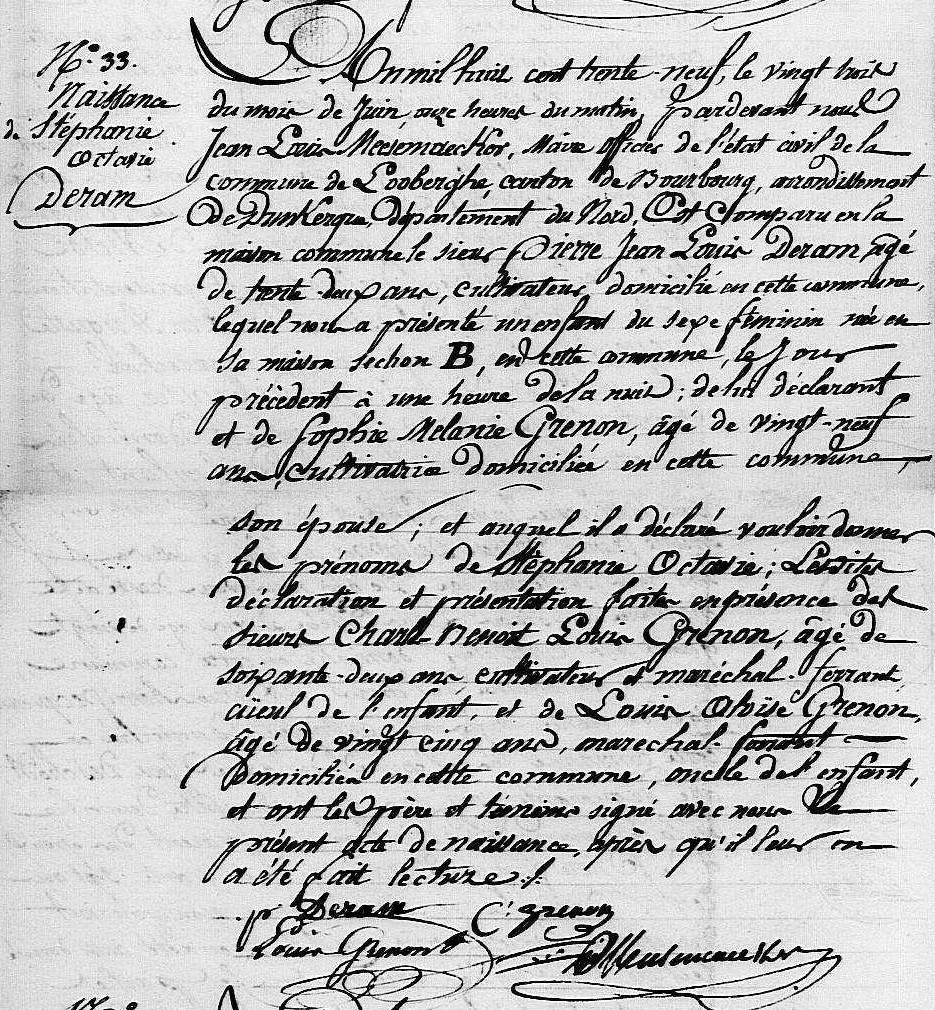 N.° 33.
Naissance
de Stéphanie
Octavie
Deram
L'an mil huit cent trente-neuf, le vingt trois
du mois de Juin, onze heures du matin, pardevant nous
Jean Louis Meesemaecker, Maire officier de l'état civil de la
commune de Looberghe, canton de Bourbourg, arrondissement
de Dunkerque, département du Nord, Est Comparu en la
maison commune le sieur Pierre Jean Louis Deram, âgé
de trente-deux ans, cultivateur, domicilié en cette commune,
lequel nous a présenté un enfant du sexe féminin née en
sa maison section B, en cette commune, le Jour
précédent à une heure de la nuit ; de lui déclarant
et de Sophie Mélanie Grenon, âgé de vingt-neuf
ans, cultivatrice domiciliée en cette commune,
son épouse ; et auquel il a déclaré vouloir donner
les prénoms de Stéphanie Octavie ; Lesdites
déclaration et présentation faites en présence des
sieurs Charle Benoit Louis Grenon, âgé de
soixante-deux ans cultivateur et maréchal-ferrant
aïeul de l'enfant, et de Louis Aloïse Grenon,
âgé de vingt cinq ans, marechal-ferrant
domiciliés en cette commune, oncle de l'enfant,
et ont les père et témoins signé avec nous le
présent acte de naissance, après qu'il leur en
a été fait lecture ./.
p. Deram C.s grenon
Louis Grenon
Meesemaecker